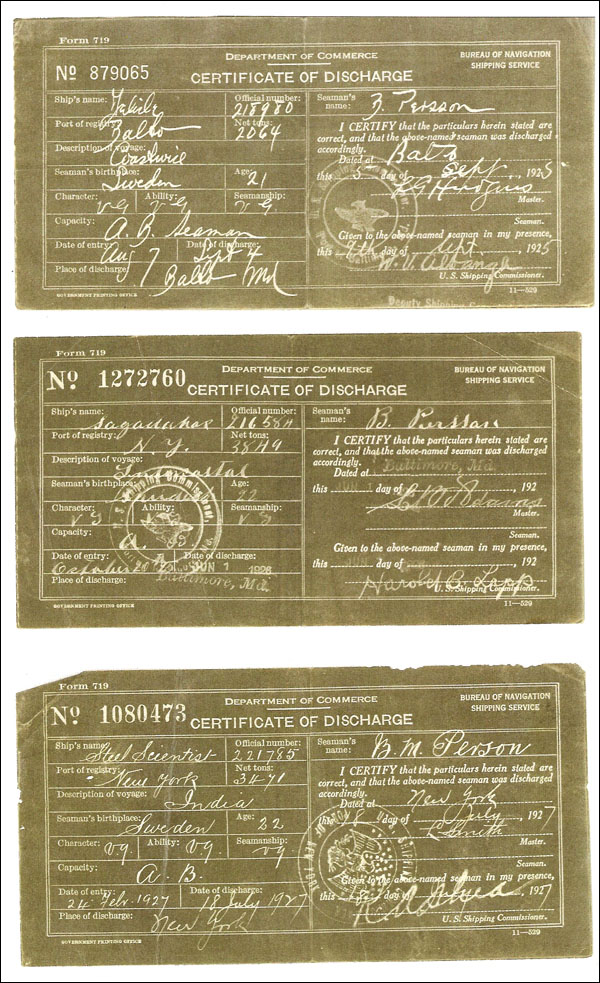 Form 719
DEPARTMENT OF COMMERCE
BUREAU OF NAVIGATION
SHIPPING SERVICE
No 879065
CERTIFICATE OF DISCHARGE
Ship's name:
Official number: 218980
Port of registry: Balto
Net tons: 2064
Description of voyage: Coastwise
Seaman's birthplace: Sweden
Age: 21
Character: V G Ability: V G Seamanship: V G
Capacity: A. B. Seaman
Date of entry: Aug 7
Date of discharge: Sept 4
Place of discharge: Balto Md
GOVERNMENT PRINTING OFFICE
Seaman's name: B. Persson
I CERTIFY that the particulars herein stated are
correct, and that the above-named seaman was discharged
accordingly.
Dated at Balto
this 5 day of Sept, 1925
Master.
Seaman.
Given to the above-named seaman in my presence,
this 9th day of Sept, 1925
U. S. Shipping Commissioner.
Deputy Shipping
11—529
Form 719
DEPARTMENT OF COMMERCE
BUREAU OF NAVIGATION
SHIPPING SERVICE
No. 1272760
CERTIFICATE OF DISCHARGE
Ship's name: Sagadahoc
Official number:
Port of registry: N. Y.
Net tons: 3849
Description of voyage: Intercoastal
Seaman's birthplace:
Age: 22
Character: V G Ability: Seamanship: V G
Capacity: A.
Date of entry: October
Date of discharge: JUN 1 1926
Place of discharge: Baltimore, Md.
GOVERNMENT PRINTING OFFICE
Seaman's name: B. Persson
I CERTIFY that the particulars herein stated are
correct, and that the above-named seaman was discharged
accordingly.
Dated at Baltimore, Md.
this day of , 192
Adams
Master.
Seaman.
Given to the above-named seaman in my presence,
this day of , 192
Harold C.
U. S. Shipping Commissioner.
11—529
Form 719
DEPARTMENT OF COMMERCE
BUREAU OF NAVIGATION
SHIPPING SERVICE
No. 1080473
CERTIFICATE OF DISCHARGE
Ship's name: Steel Scientist
Official number: 221785
Port of registry: New York
Net tons: 3471
Description of voyage: India
Seaman's birthplace: Sweden
Age: 22
Character: V.g. Ability: V.g. Seamanship: V.g.
Capacity: A. B.
Date of entry: 24 Feb. 1927
Date of discharge: 18 July 1927
Place of discharge: New York
GOVERNMENT PRINTING OFFICE
Seaman's name: B. M. Person
I CERTIFY that the particulars herein stated are
correct, and that the above-named seaman was discharged
accordingly.
Dated at New York
this 18 day of July, 1927
Smith
Master.
Seaman.
Given to the above-named seaman in my presence,
this day of , 1927
U. S. Shipping Commissioner.
11—529